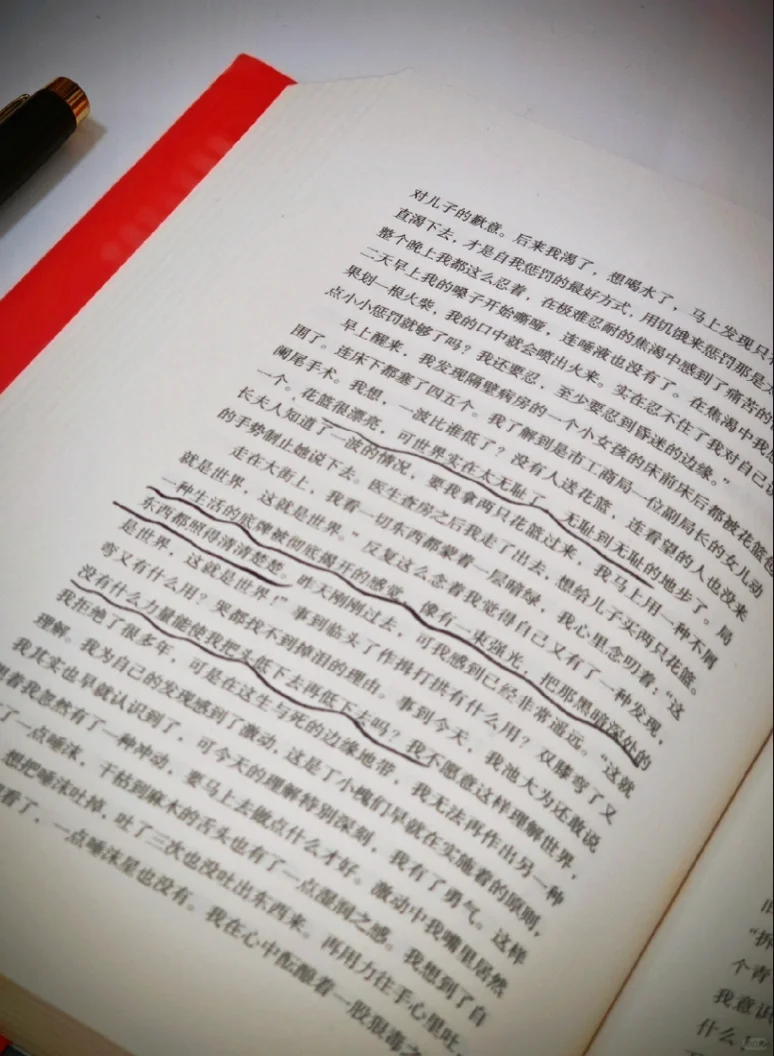 对儿子的歉意。后来我渴了，想喝水了，马上发现只
直渴下去，才是自我惩罚的最好方式，用饥饿来惩罚那是
整个晚上我都这么忍着，在极难忍耐的焦渴中感到了痛苦的
二天早上我的嗓子开始嘶哑，连唾液也没有了。在焦渴中我
果划一根火柴，我的口中就会喷出火来。实在忍不住了我对自己
点小小惩罚就够了吗？我还要忍，至少要忍到昏迷的边缘。”
早上醒来，我发现隔壁病房的一个小女孩的床前床后都被花篮包
围了。连床下都塞了四五个。我了解到是市工商局一位副局长的女儿动
阑尾手术。我想，一波比谁低了？没有人送花篮，连看望的人也没来
一个。花篮很漂亮，可世界实在太无耻了，无耻到无耻的地步了。局
长夫人知道了一波的情况，要我拿两只花篮过来，我马上用一种不屑
的手势制止她说下去。医生查房之后我走了出去，想给儿子买两只花篮。
走在大街上，我看一切东西都蒙着一层暗绿，我心里念叨着：“这
就是世界，这就是世界。”反复这么念着我觉得自己又有了一种发现，
一种生活的底牌被彻底揭开的感觉，像有一束强光，把那黑暗深处的
东西都照得清清楚楚。昨天刚刚过去，可我感到已经非常遥远。“这就
是世界，这就是世界！”事到临头了作揖打拱有什么用？双膝弯了又
弯又有什么用？哭都找不到掉泪的理由。事到今天，我池大为还敢说
没有什么力量能使我把头低下去再低下去吗？我不愿意这样理解世界，
我拒绝了很多年，可是在这生与死的边缘地带，我无法再作出另一种
理解。我为自己的发现感到了激动，这是丁小槐们早就在实施着的原则，
我其实也早就认识到了，可今天的理解特别深刻，我有了勇气。这样
着我忽然有了一种冲动，要马上去做点什么才好。激动中我嘴里居然
了一点唾沫，干枯到麻木的舌头也有了一点湿润之感。我想到了自
想把唾沫吐掉，吐了三次也没吐出东西来。再用力往手心里吐，
看了，一点唾沫星也没有。我在心中酝酿着一股狠毒之
“拆
个青
我意识
什么